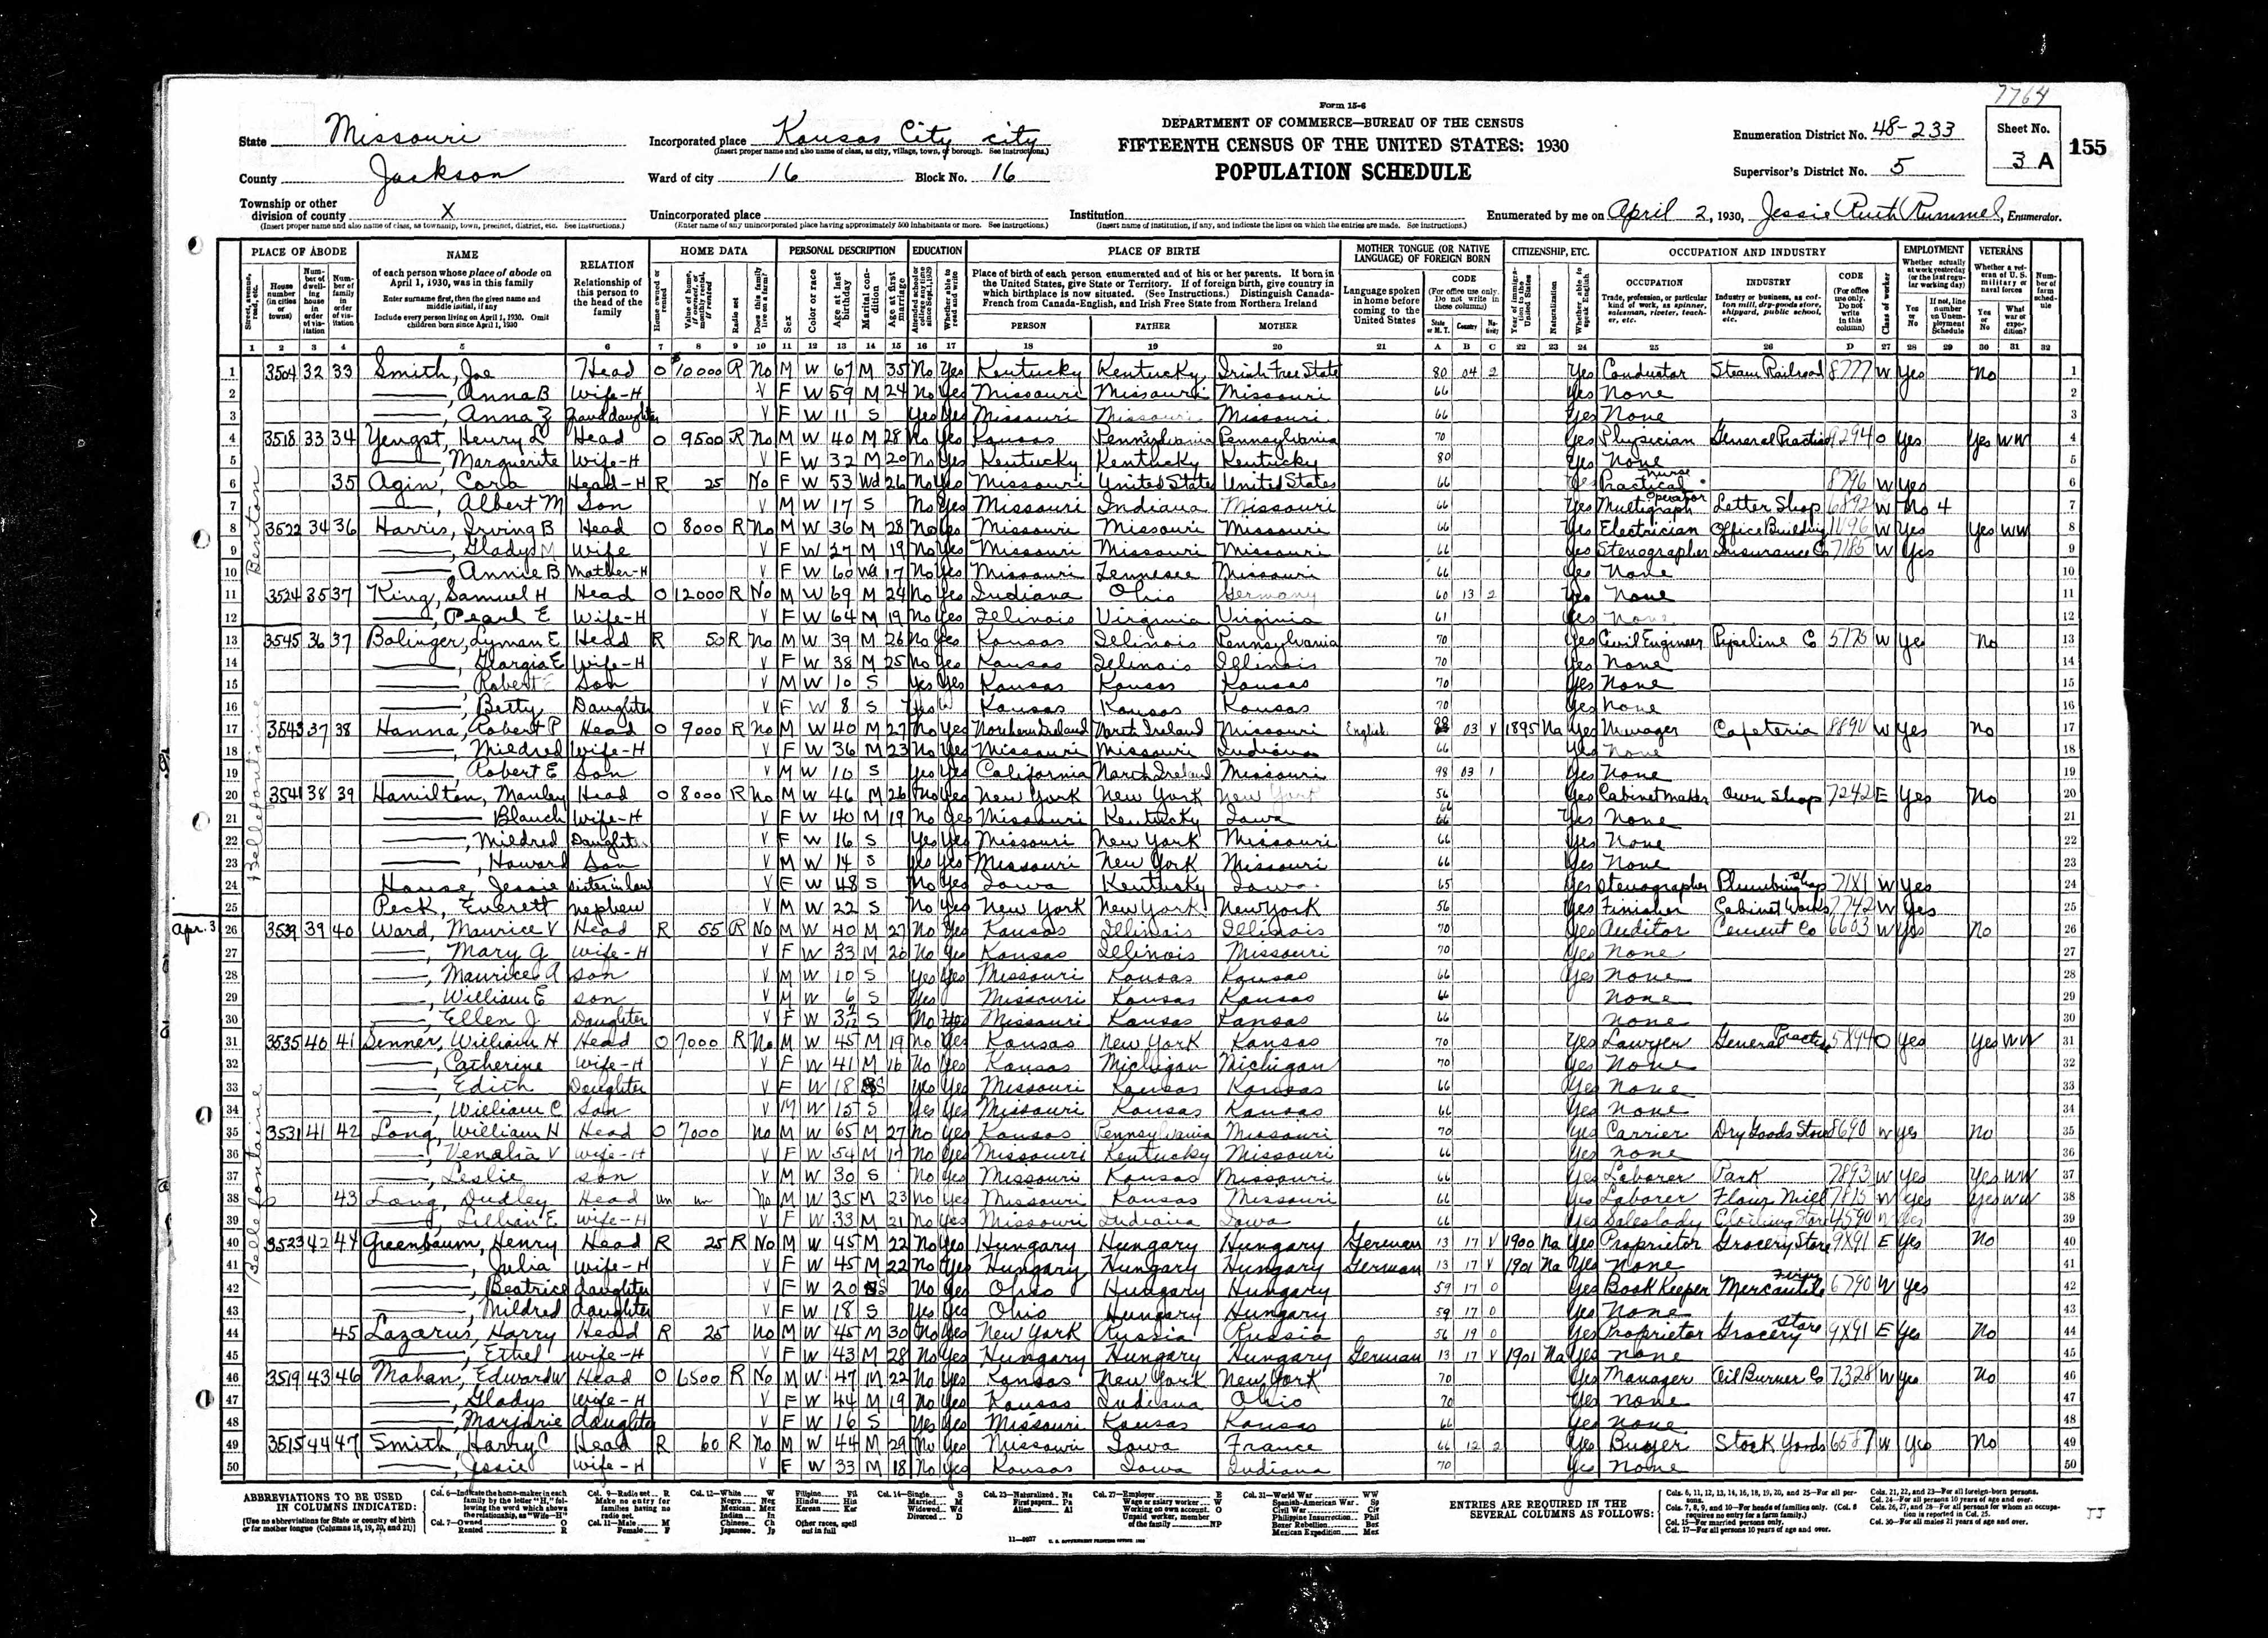 7764
Form 15-6
State Missouri
Incorporated place Kansas City city
(Insert proper name and also name of class, as city, village, town, or borough. See instructions.)
DEPARTMENT OF COMMERCE—BUREAU OF THE CENSUS
FIFTEENTH CENSUS OF THE UNITED STATES: 1930
POPULATION SCHEDULE
Enumeration District No. 48-233
Sheet No.
3 A
155
County Jackson
Ward of city 16 Block No. 16
Supervisor's District No. 5
Township or other division of county X
(Insert proper name and also name of class, as township, town, precinct, district, etc. See instructions.)
Unincorporated place
(Enter name of any unincorporated place having approximately 500 inhabitants or more. See instructions.)
Institution
(Insert name of institution, if any, and indicate the lines on which the entries are made. See instructions.)
Enumerated by me on April 2, 1930, Jessie Ruth Rummel, Enumerator.
PLACE OF ABODE NAME RELATION HOME DATA PERSONAL DESCRIPTION EDUCATION PLACE OF BIRTH MOTHER TONGUE (OR NATIVE LANGUAGE) OF FOREIGN BORN CITIZENSHIP, ETC. OCCUPATION AND INDUSTRY EMPLOYMENT VETERANS
1 2 3 4 5 6 7 8 9 10 11 12 13 14 15 16 17 18 19 20 21 A B C 22 23 24 25 26 D 27 28 29 30 31 32
1 3504 32 33 Smith, Joe Head O $10000 R No M W 67 M 35 No Yes Kentucky Kentucky Irish Free State 80 04 2 Yes Conductor Steam Railroad 8777 W Yes No 1
2 , Anna B Wife-H V F W 59 M 24 No Yes Missouri Missouri Missouri 66 Yes None 2
3 , Anna Z Granddaughter V F W 11 S Yes Yes Missouri Missouri Missouri 66 Yes None 3
4 3518 33 34 Yengst, Henry L Head O 9500 R No M W 40 M 28 No Yes Kansas Pennsylvania Pennsylvania 70 Yes Physician General Practice 9294 O Yes Yes WW 4
5 , Marguerite Wife-H V F W 32 M 20 No Yes Kentucky Kentucky Kentucky 80 Yes None 5
6 35 Agin, Cora Head-H R 25 No F W 53 Wd 26 No Yes Missouri United States United States 66 Yes Practical Nurse 8796 W Yes 6
7 , Albert M Son V M W 17 S No Yes Missouri Indiana Missouri 66 Yes Multigraph Operator Letter Shop 6892 W No 4 7
8 3522 34 36 Harris, Irving B Head O 8000 R No M W 36 M 28 No Yes Missouri Missouri Missouri 66 Yes Electrician Office Building 1196 W Yes Yes WW 8
9 , Gladys M Wife V F W 27 M 19 No Yes Missouri Missouri Missouri 66 Yes Stenographer Insurance Co 7185 W Yes 9
10 , Annie B Mother-H V F W 60 Wd 17 No Yes Missouri Tennesee Missouri 66 Yes None 10
11 3524 35 37 King, Samuel H Head O 12000 R No M W 69 M 24 No Yes Indiana Ohio Germany 60 13 2 Yes None 11
12 , Pearl E Wife-H V F W 64 M 19 No Yes Illinois Virginia Virginia 61 Yes None 12
13 3545 36 37 Bolinger, Lyman E Head R 50 R No M W 39 M 26 No Yes Kansas Illinois Pennsylvania 70 Yes Civil Engineer Pipeline Co 5775 W Yes No 13
14 , Georgia E Wife-H V F W 38 M 25 No Yes Kansas Illinois Illinois 70 Yes None 14
15 , Robert Son V M W 10 S Yes Yes Kansas Kansas Kansas 70 Yes None 15
16 , Betty Daughter V F W 8 S Yes Kansas Kansas Kansas 70 Yes None 16
17 3543 37 38 Hanna, Robert P Head O 9000 R No M W 40 M 27 No Yes Northern Ireland North Ireland Missouri English 03 V 1895 Na Yes Manager Cafeteria 8890 W Yes No 17
18 , Mildred Wife-H V F W 36 M 23 No Yes Missouri Missouri Indiana 66 Yes None 18
19 , Robert E Son V M W 10 S Yes Yes California North Ireland Missouri 98 03 1 Yes None 19
20 3541 38 39 Hamilton, Manley Head O 8000 R No M W 46 M 26 No Yes New York New York New York 56 Yes Cabinet maker Own Shop 7242 E Yes No 20
21 Blanch Wife-H V F W 40 M 19 No Yes Missouri Kentucky Iowa 66 Yes None 21
22 , Mildred Daughter V F W 16 S Yes Yes Missouri New York Missouri 66 Yes None 22
23 , Howard Son V M W 14 S Yes Yes Missouri New York Missouri 66 Yes None 23
24 House, Jessie Sister in law V F W 48 S No Yes Iowa Kentucky Iowa 65 Yes Stenographer Plumbing Shop 71X1 W Yes 24
25 Peck, Everett nephew V M W 22 S No Yes New York New York New York 56 Yes Finisher Cabinet Works 7742 W Yes 25
Apr. 3 26 3539 39 40 Ward, Maurice V Head R 55 R No M W 40 M 27 No Yes Kansas Illinois Illinois 70 Yes Auditor Cement Co 6603 W Yes No 26
27 , Mary G Wife-H V F W 33 M 20 No Yes Kansas Illinois Missouri 70 Yes None 27
28 , Maurice A Son V M W 10 S Yes Yes Missouri Kansas Kansas 66 Yes None 28
29 , William E son V M W 6 S Yes Missouri Kansas Kansas 66 None 29
30 , Ellen J Daughter V F W S No Missouri Kansas Kansas 66 None 30
31 3535 40 41 Senner, William H Head O 7000 R No M W 45 M 19 No Yes Kansas New York Kansas 70 Yes Lawyer General Practice 5X94 O Yes Yes WW 31
32 , Catherine Wife-H V F W 41 M 16 No Yes Kansas Michigan Michigan 70 Yes None 32
33 , Edith Daughter V F W 18 S Yes Yes Missouri Kansas Kansas 66 Yes None 33
34 , William C Son V M W 15 S Yes Yes Missouri Kansas Kansas 66 Yes None 34
35 3531 41 42 Long, William H Head O 7000 No M W 65 M 27 No Yes Kansas Pennsylvania Missouri 70 Yes Carrier Dry Goods Store 8690 W Yes No 35
36 , Venalia V Wife-H V F W 54 M 17 No Yes Missouri Kentucky Missouri 66 Yes None 36
37 , Leslie son V M W 30 S No Yes Missouri Kansas Missouri 66 Yes Laborer Park 7893 W Yes Yes WW 37
38 43 Long, Dudley Head un un No M W 35 M 23 No Yes Missouri Kansas Missouri 66 Yes Laborer Flour Mill 7815 W Yes Yes WW 38
39 , Lillian E Wife-H V F W 33 M 21 No Yes Missouri Indiana Iowa 66 Yes Saleslady Clothing Store 4590 W Yes 39
40 3523 42 44 Greenbaum, Henry Head R 25 R No M W 45 M 22 No Yes Hungary Hungary Hungary German 13 17 V 1900 Na Yes Proprietor Grocery Store 9X91 E Yes No 40
41 , Julia Wife-H V F W 45 M 22 No Yes Hungary Hungary Hungary German 13 17 V 1901 Na Yes None 41
42 , Beatrice daughter V F W 20 S No Yes Ohio Hungary Hungary 59 17 0 Yes Book Keeper Mercantile Firm 6790 W Yes 42
43 , Mildred daughter V F W 18 S Yes Yes Ohio Hungary Hungary 59 17 0 Yes None 43
44 45 Lazarus, Harry Head R 25 No M W 45 M 30 No Yes New York Russia Russia 56 19 0 Yes Proprietor Grocery Store 9X91 E Yes No 44
45 , Ethel Wife-H V F W 43 M 28 No Yes Hungary Hungary Hungary German 13 17 V 1901 Na Yes None 45
46 3519 43 46 Mahan, Edward W Head O 6500 R No M W 47 M 22 No Yes Kansas New York New York 70 Yes Manager Oil Burner Co 7328 W Yes No 46
47 , Gladys Wife-H V F W 44 M 19 No Yes Kansas Indiana Ohio 70 Yes None 47
48 , Marjorie daughter V F W 16 S Yes Yes Missouri Kansas Kansas 66 Yes None 48
49 3515 44 47 Smith, Harry C Head R 60 R No M W 44 M 29 No Yes Missouri Iowa France 66 12 2 Yes Buyer Stock Yards 6587 W Yes No 49
50 , Jessie Wife-H V F W 33 M 18 No Yes Kansas Iowa Indiana 70 Yes None 50
Benton
Bellefontaine
Bellefontaine
ABBREVIATIONS TO BE USED IN COLUMNS INDICATED:
[Use no abbreviations for State or country of birth or for mother tongue (Columns 18, 19, 20, and 21)]
ENTRIES ARE REQUIRED IN THE SEVERAL COLUMNS AS FOLLOWS:
JJ